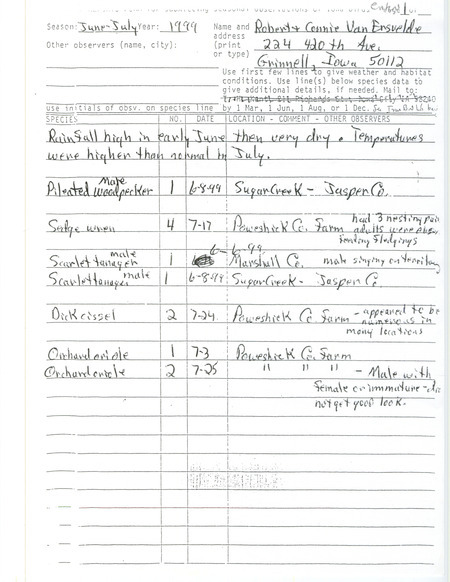 Season: June-July Year: 1999
Name and address (print or type)
Robert & Connie Van Ersvelde
224 420th Ave.
Grinnell, Iowa 50112
Other observers (name, city):
Use first few lines to give weather and habitat
conditions. Use line(s) below species data to
give additional details, if needed. Mail to:
use initials of obsv. on species line by 1 Mar, 1 Jun, 1 Aug, or 1 Dec.
SPECIES NO. DATE LOCATION - COMMENT - OTHER OBSERVERS
Rainfall high in early June then very dry. Temperatures
were higher than normal by July.
Pileated Woodpecker male 1 6-8-99 Sugar Creek - Jasper Co.
Sedge wren 4 7-17 Poweshiek Co. Farm had 3 nesting pair
adults were
tending fledgings
Scarlet tanager male 1 6-6-99 Marshall Co. male singing on territory
Scarlet tanager male 1 6-8-99 Sugar Creek - Jasper Co.
Dickcissel 2 7-24 Poweshiek Co. Farm - appeared to be
numerous in
many locations
Orchard oriole 1 7-3 Poweshiek Co. Farm
Orchard oriole 2 7-25 " " " - Male with
female or immature - did
not get good look.